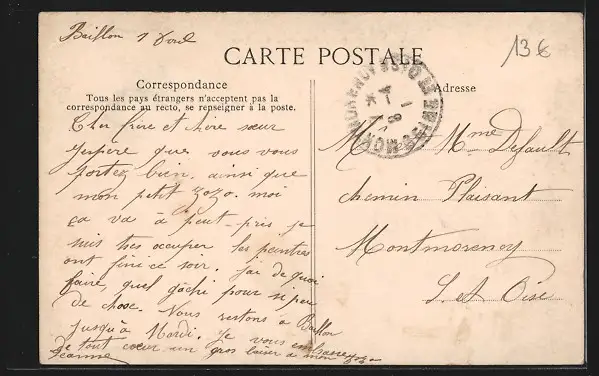 Baillon 1 Aout
13€
CARTE POSTALE
Correspondance
Tous les pays étrangers n'acceptent pas la
correspondance au recto, se renseigner à la poste.
Adresse
Cher frère et chère sœur
j'espère que vous vous
portez bien, ainsi que
mon petit zozo. moi
ça va à peut-pris je
suis tres occuper les peintres
ont fini ce soir. j'ai de quoi
faire, quel gâchi pour si peu
de chose. Nous restons a Baillon
jusqu'à Mardi. Je vous embrasse
de tout cœur un gros baiser a mon zozo
Jeanne
M Mme Default
chemin Plaisant
Montmorency
S. et Oise